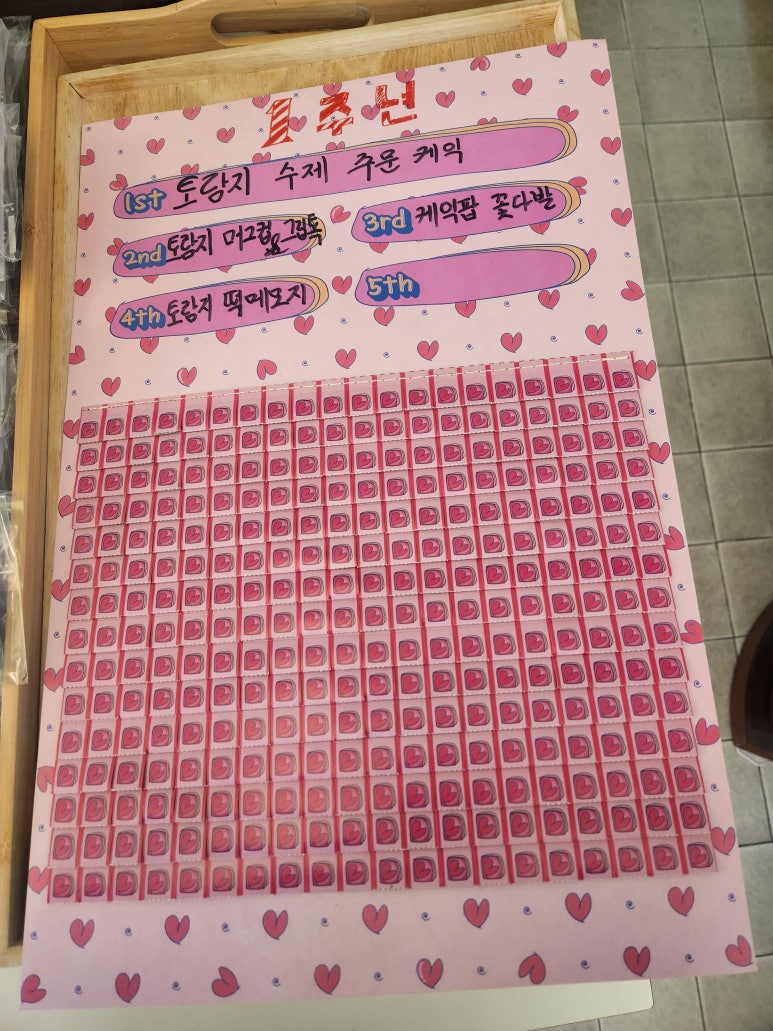 1주년
1st 토랑지 수제 주문 케익
2nd 토랑지 머그컵 & 그립톡
3rd 케익팝 꽃다발
4th 토랑지 떡메모지
5th